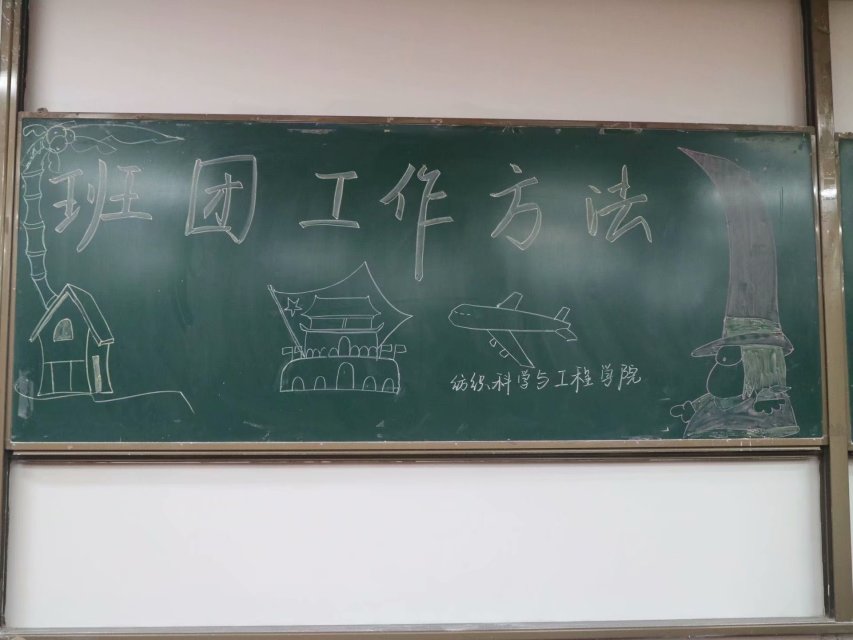 班团工作方法
纺织科学与工程学院